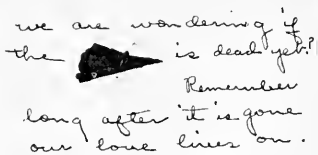 we are wondering if
the is dead yet?
Remember
long after it is gone
our love lives on.